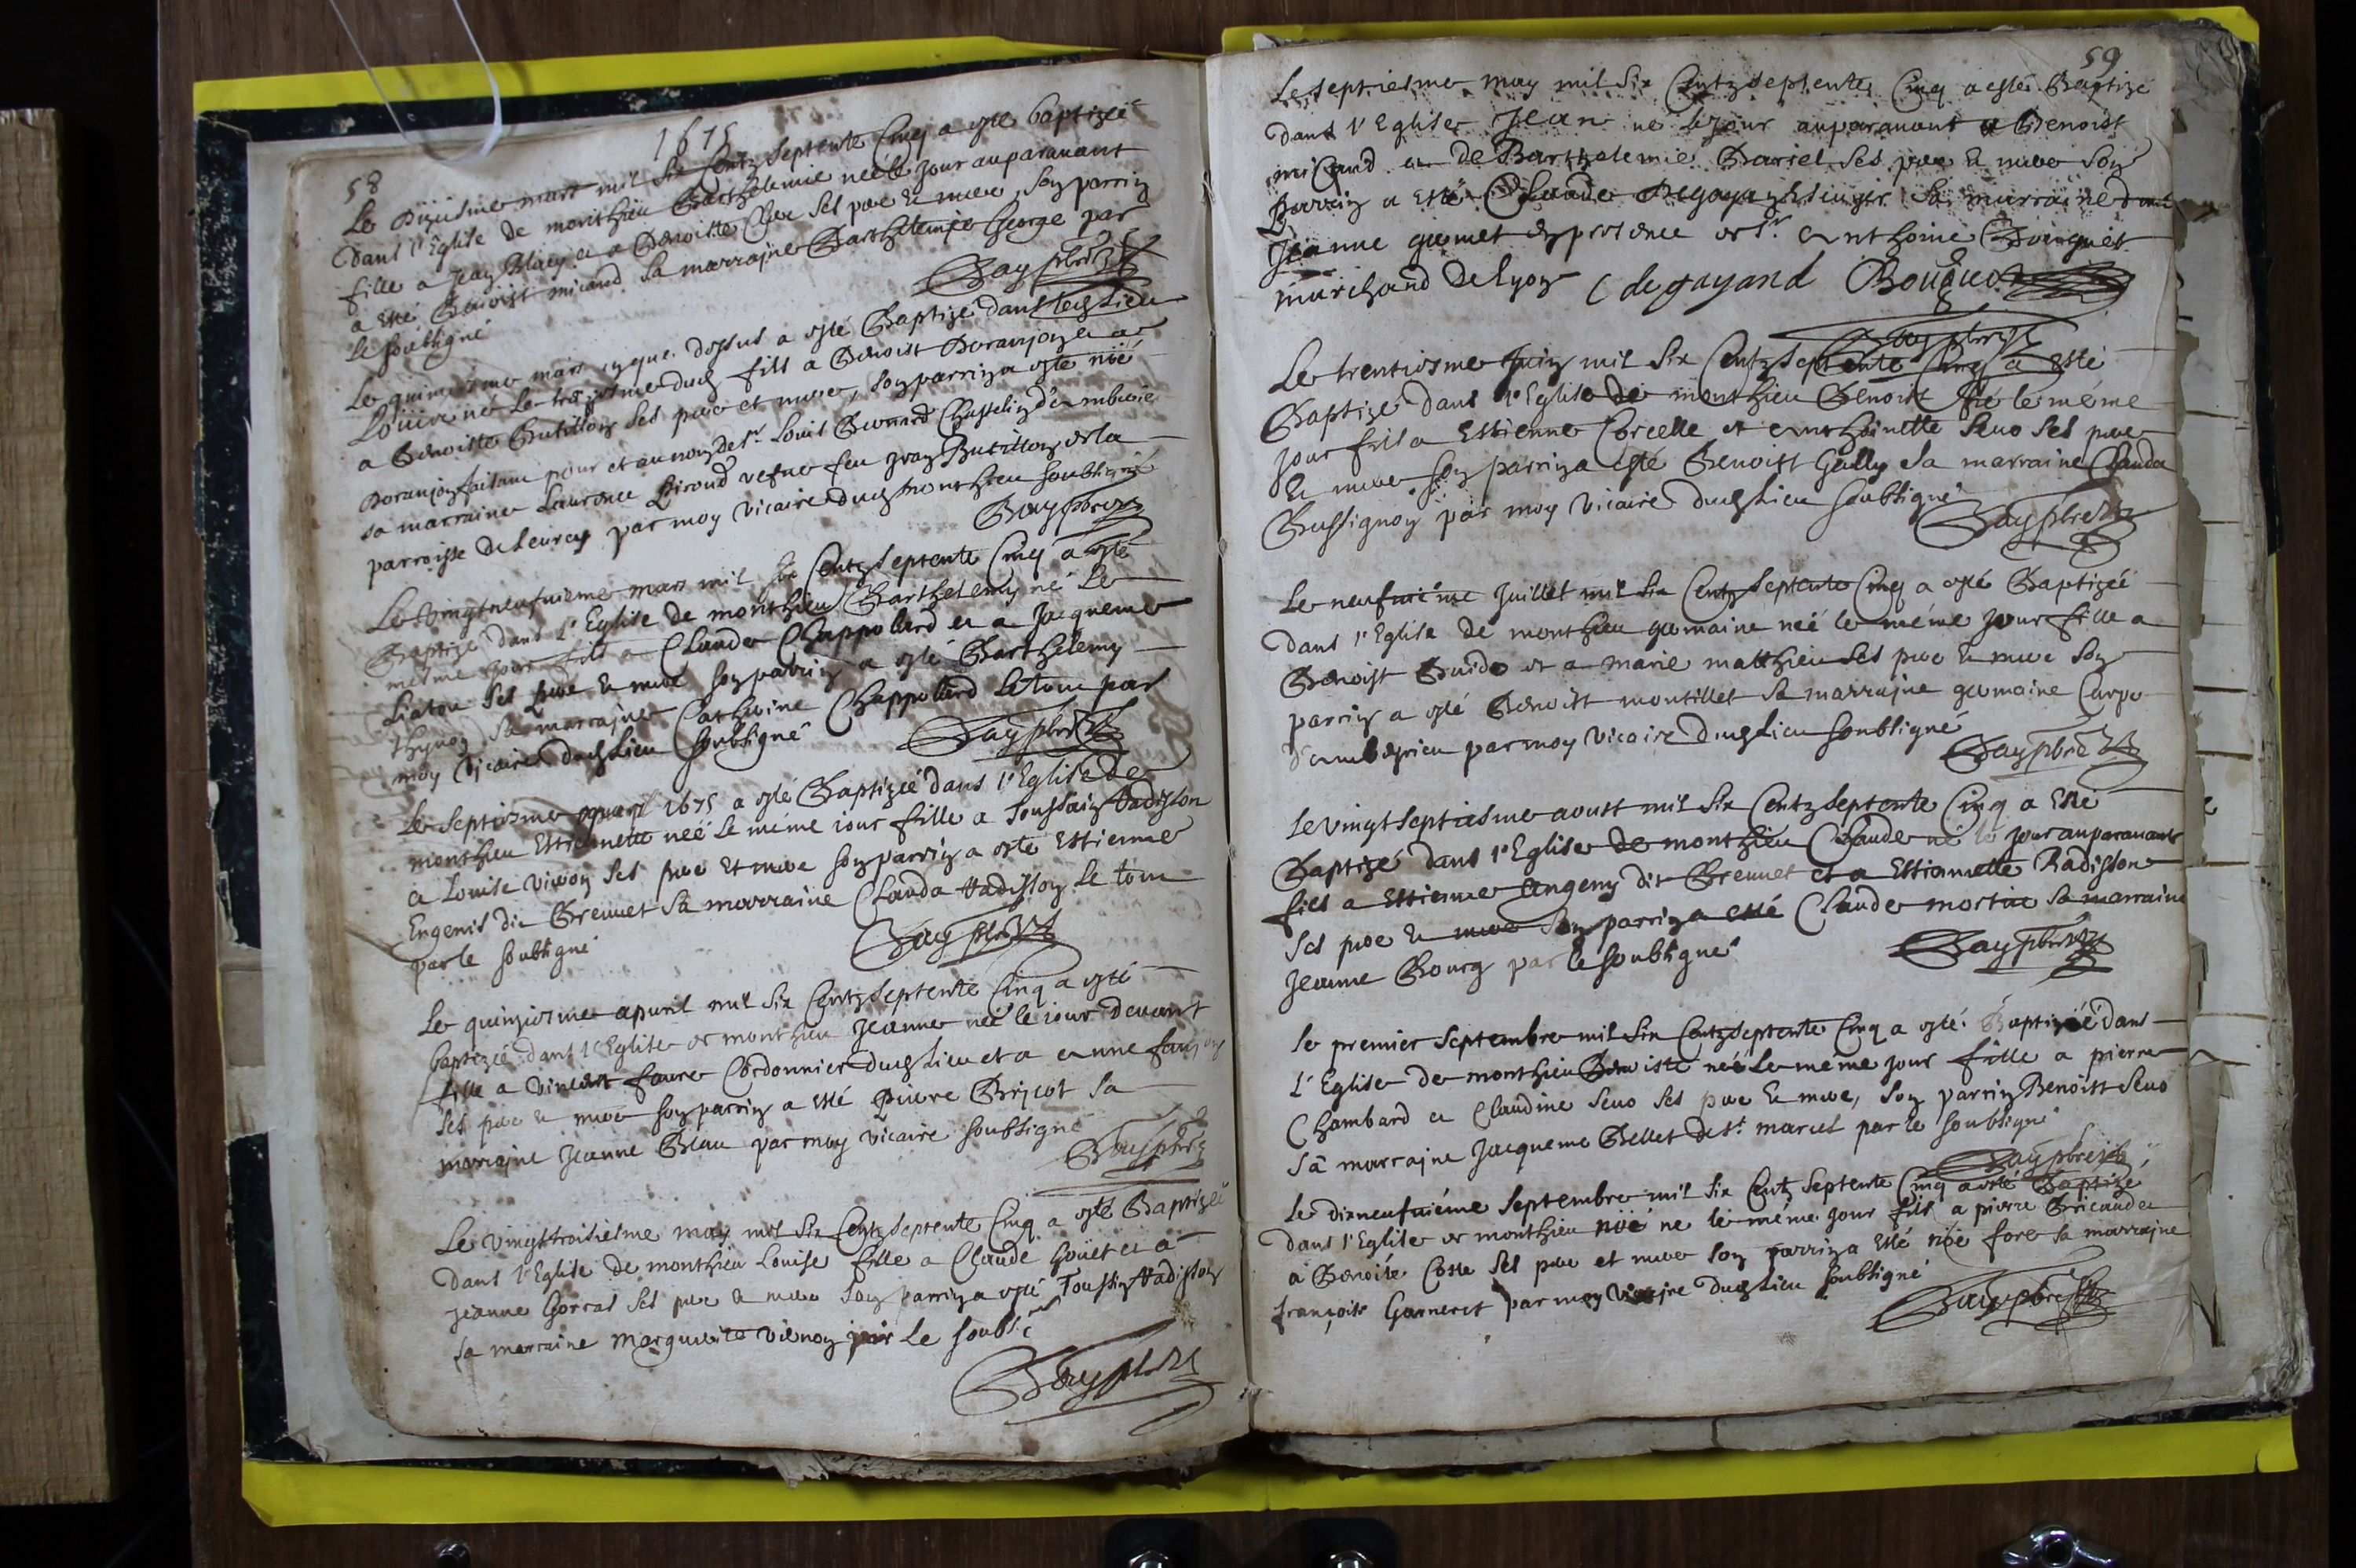 58
1675
Le dixiesme mars mil six Centz septente Cinq a esté baptizée
dans l'Eglise de monthieu Barthelemie neé le jour auparauant
fille a Jean Blanc et a Benoitte Cher ses pere et mere son parrin
a esté Benoist micaud sa marrajne Barthelemie George par
le soubsigné
Bay pbre
Le quinziesme mars que dessus a esté Baptizé dans led Lieu
né Le troisiesme dud fils a Benoist Doranjon et a
a Benoitte Butillon ses pere et mere, son parrin a esté nöé
Doranjon faisant pour et au nom de Sr. Louis Bernard Chastelin d'ambroie
sa marraine Laurence Piroud vefue feu Jean Butillon de la
parroisse de par moy vicaire dud monthieu soubsigné
Bay pbre
Le vingtneufuieme mars mil six Centz septente Cinq a esté
Baptizé dans L'Eglise de monthieu Barthelemy né Le
mesme jour fils a Claude Chappolard et a Jacqueme
Liaton ses pere et mere son parrin a esté Barthelemy
sa marrajne Catherine Chappolard Le tout par
moy vicaire dud Lieu soubsigné
Bay pbre
Le septiesme 1675 a esté Baptizée dans l'Eglise de
monthieu Estiennette neë Le méme iour fille a Toussain Radisson
et Louise viuon ses pere et mere son parrin a esté Estienne
Engenis dit Breuuet sa marraine Clauda Radisson Le tout
par le soubsigné
Bay pbre
Le quinziesme apuril mil six Centz septente Cinq a esté
baptizée dans l'Eglise de monthieu Jeanne neé le iour deuant
fille a vincent faure Cordonnier dud Lieu et a anne
ses pere et mere son parrin a esté Pierre Bricot sa
marrajne Jeanne Beau par moy vicaire soubsigné
Bay pbre
Le vingttroisiesme may mil six Centz septente Cinq a esté Baptizée
dans l'Eglise de monthieu Louise fille a Claude Goüet et a
Jeanne Gorras ses pere et mere son parrin a esté Toussin Radisson
sa marraine marguerite vienoy par Le soubs.né
Bay pbre
59
Le septiesme may mil six Centz septente Cinq a esté Baptizé
dans l'Eglise Jean né le jour auparauant a Benoist
micaud et de Barthelemie Bariel ses pere et mere son
parrin a esté Claude Degayan sa marraine dame
Jeanne gumet en presence de Sr. anthoine Bouquet
marchand de Lyon C degayand Bouquet
Bay pbre
Le trentiesme Juin mil six Centz septente Cinq a esté
Baptizé dans l'Eglise de monthieu Benoist né le méme
jour fils a Estienne Corcelle et anthoinette Seuo ses pere
et mere son parrin a esté Benoist Gully sa marraine Clauda
Bussignon par moy vicaire dud Lieu soubsigné
Bay pbre
Le neufuiéme Juillet mil six Centz septente Cinq a esté Baptizée
dans l'Eglise de monthieu germaine neé le méme jour fille a
Benoist Buido et a marie matthieu ses pere et mere son
parrin a esté Benoist montillet sa marrajne germaine Carpo
d'amberieu par moy vicaire dud Lieu soubsigné
Bay pbre
Le vingt septiesme aoust mil six Centz septente Cinq a esté
Baptizé dans l'Eglise de monthieu Claude né le jour auparauant
fils a Estienne Angeny dit Breuuet et a Estiennette Radisson
ses pere et mere son parrin a esté Claude mortier sa marraine
Jeanne Bourg par le soubsigné
Bay pbre
Le premier septembre mil six Centz septente Cinq a esté Baptizéé dans
L'Eglise de monthieu Benoiste neé Le méme jour fille a pierre
Chambard et Claudine Seuo ses pere et mere, son parrin Benoist Seuo
sa marrajne Jacqueme Bellet de St. marcel par le soubsigné
Bay pbre
Le dixneufuiéme septembre mil six Centz septente Cinq a esté Baptizé
dans l'Eglise de monthieu nöé né le méme jour fils a pierre Bricaud et
a Benoite Coste ses pere et mere son parrin a esté nöé fore sa marrajne
françoise Garneret par moy vicajre dud Lieu soubsigné
Bay pbre